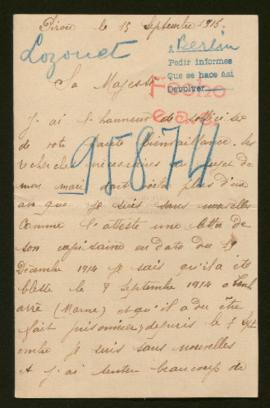 Pirou le 15 Septembre 1915.
Lozouet
à Berlin
Pedir informes
Que se hace asi
Devolver
Sa Majesté
Fecho
95874
J'ai l'honneur de
de votre haute bienveillance, les
recherches nécessaires au sujet de
mon mari voilà plus d'un
an que je suis sans nouvelles
Comme l'atteste une lettre de
son capitaine en date du 29
Décembre 1914 je sais qu'il a été
blessé le 7 Septembre 1914 à
(Marne) et qu'il a du être
fait prisonnier, depuis le 7 Sept
embre je suis sans nouvelles
et j'ai beaucoup de